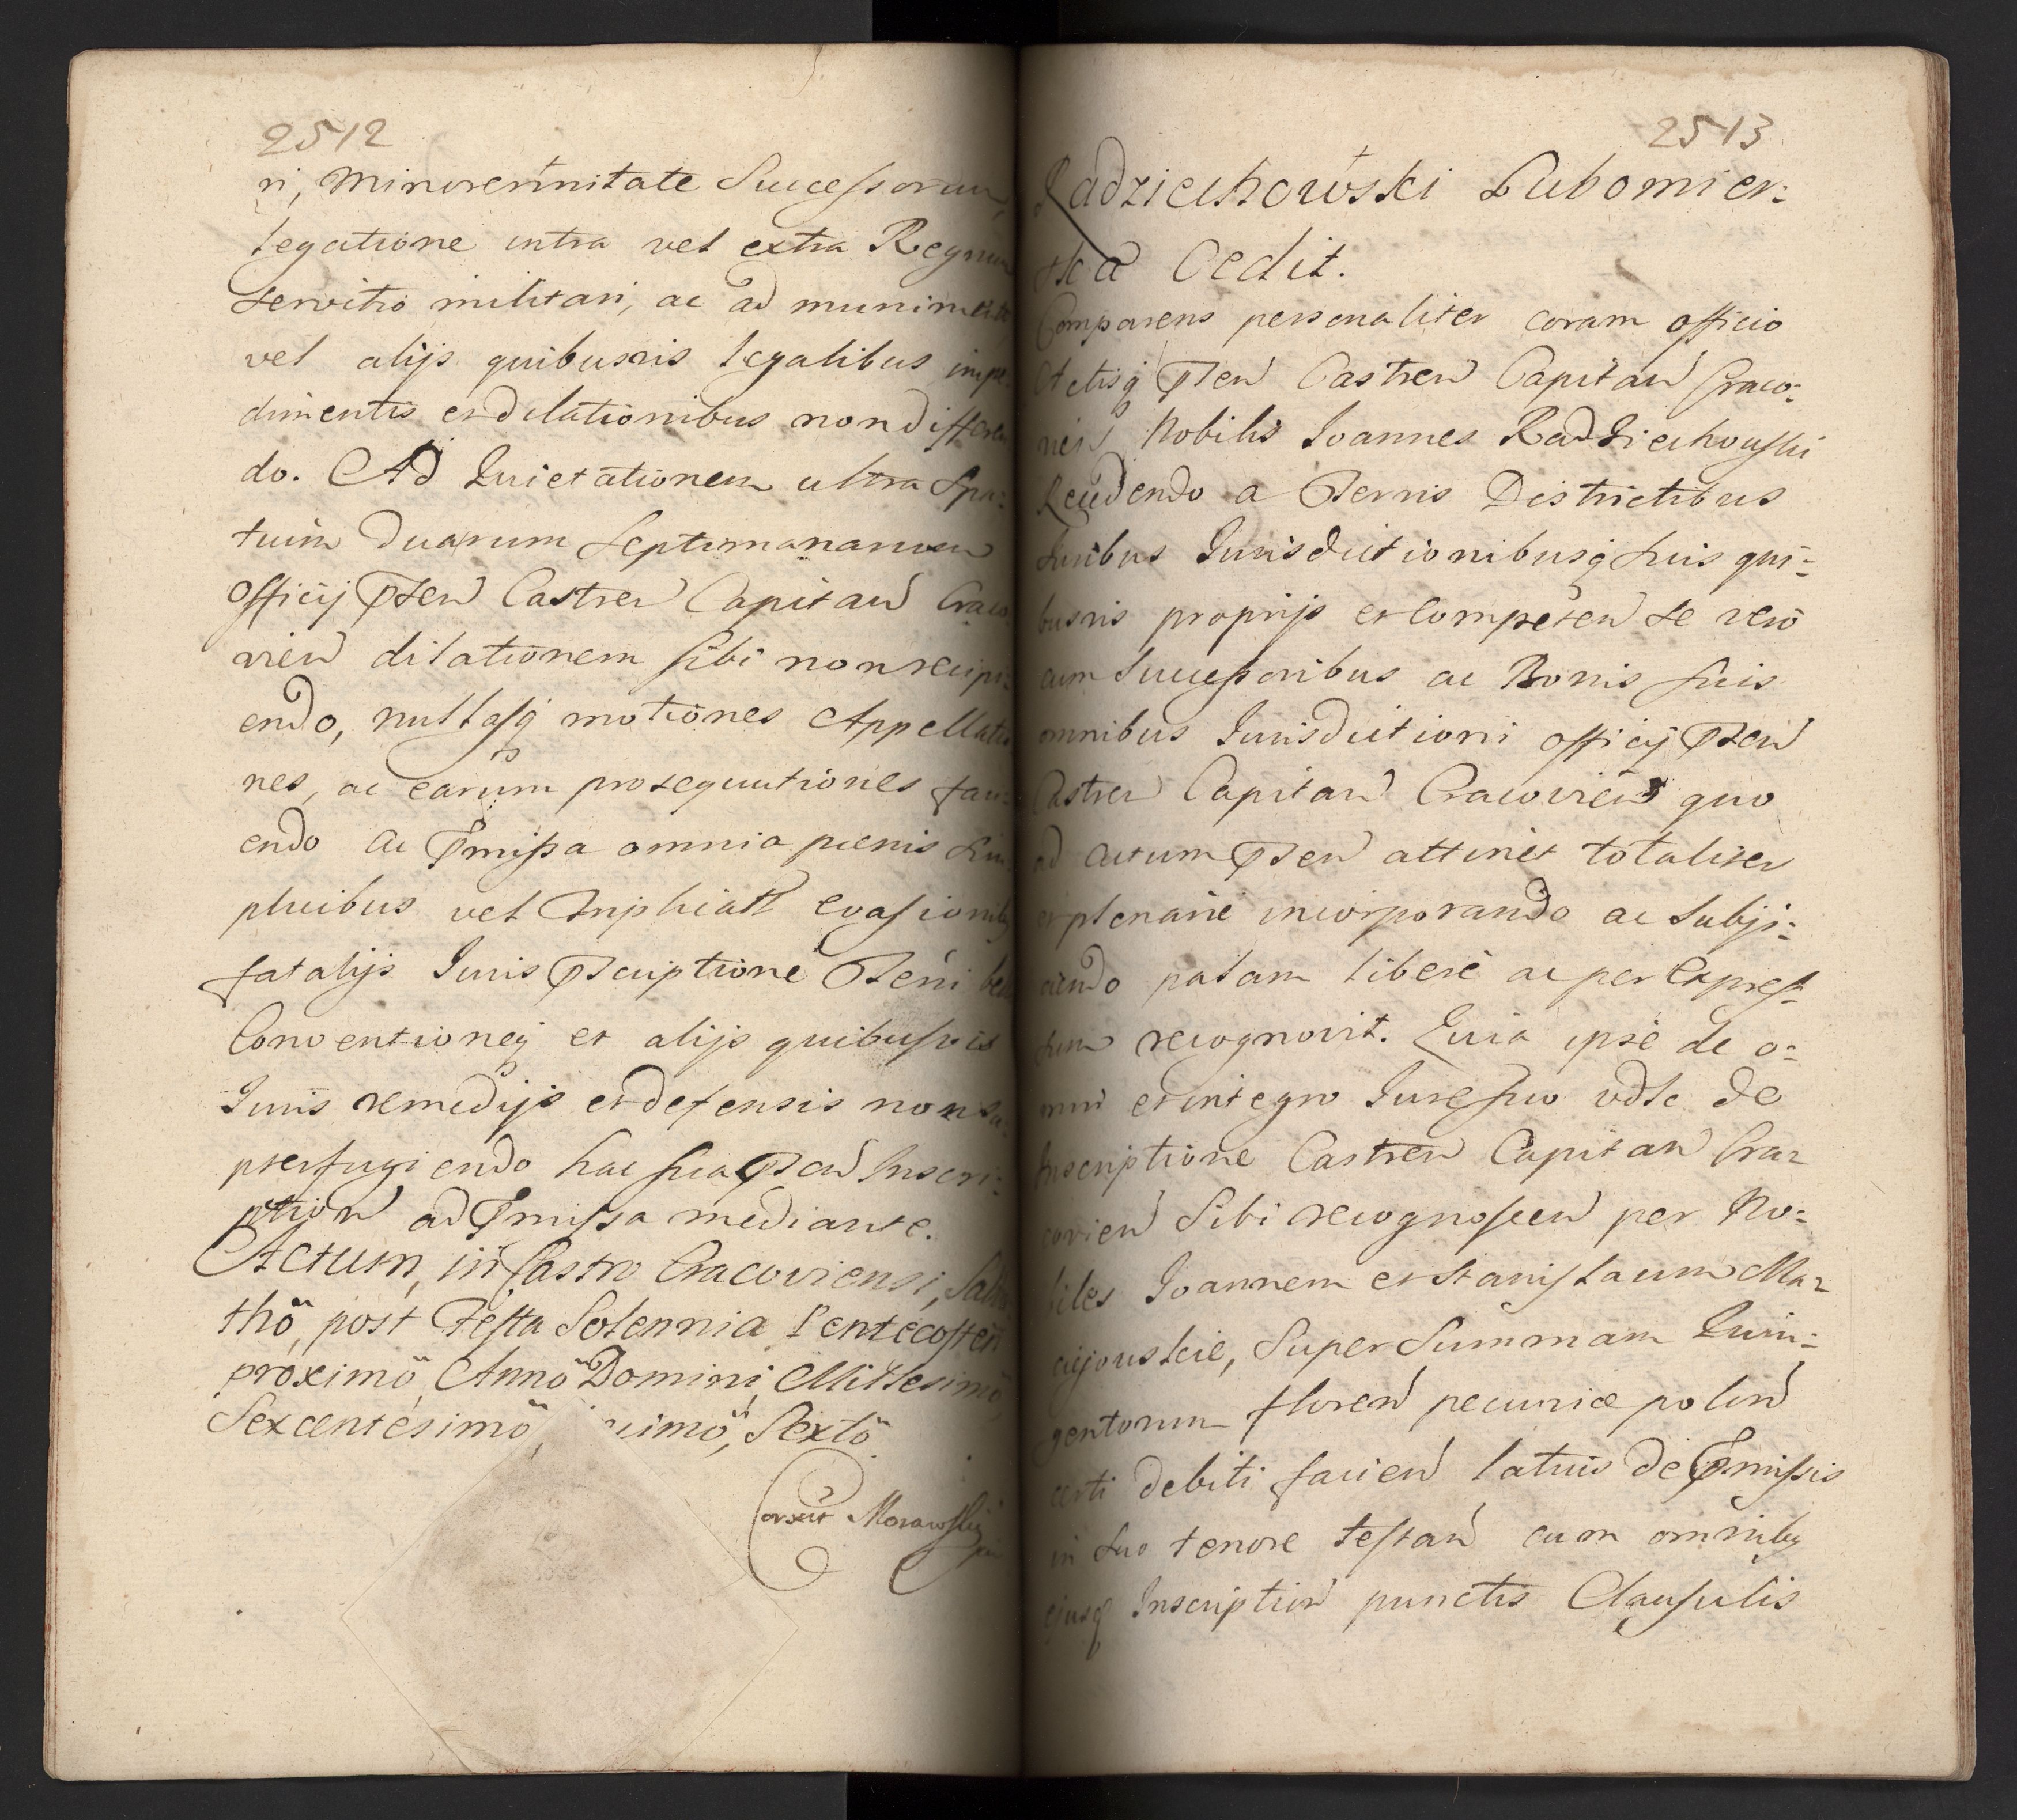 2512
ri, Minorennitate Successorum,
legatione intra vel extra Regnum
servitio militari, ac ad munimenta
vel alijs quibusvis legalibus impe-
dimentis et dilationibus non differen
do. Ad Quietationem ultra Spa-
tium duarum Septimanarum
Officij Pñsen Castren Capitan Craco
vien dilationem sibi non recipi-
endo, nullasq motiones Appellatio
nes, ac earum prosequutiones faci-
endo ac Pmissa omnia pœnis sim
plicibus vel Triplicatt evasionib
fatalijs Juris Pscriptione
Conventioneq et alijs quibusvis
Juris remedijs et defensis non su-
pterfugiendo hac sua Pñsen Inscri-
ption ad Pmissa mediante.
Actum, in Castro Cracoviensi, Sabba
thō, post Festa Solennia Pentecosten
proximō, Annō Domini, Millesimō,
Sexcentesimō, Sextō
Morawskij
2513
Radziechowski Lubomier=
ska Cedit.
Comparens personaliter coram officio
Actisq Pñsen Castren Capitan Craco=
vien Nobilis Joannes Radziechowski
Recedendo a Terris Districtibus
Juribus Jurisdictionibusq suis qui=
busvis proprijs et competen se vero
cum Successoribus ac Bonis suis
omnibus Jurisdictioni officij Pñsen
Castren Capitan Cracovien quo
ad actum Pñsen attinet totaliter
et plenarie incorporando ac subji=
ciendo palam libere ac per expres
sum recognovit. Quia ipse de o=
mni et integro Jure suo vdlc de
Inscriptione Castren Capitan Cra=
covien Sibi recognoscen per No=
biles Joannem et Stanislaum Ma=
ciejowskie, Super Summam Quin=
gentorum floren pecuniæ polon
certi debiti facien latius de Pmissis
in suo tenore testan cum omnibq
ejusq Inscription punctis Clausulis